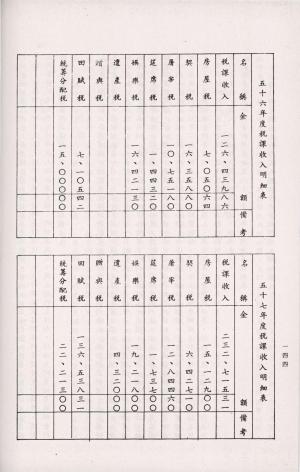 五十六年度稅課收入明細表
名稱 金額 備考
稅課收入 一二六・四三九八六
房屋稅 七・〇五〇六四
契稅 一六・三五八八〇
屠宰稅 一〇・七五一八〇
筵席稅 一・四四三二〇
娛樂稅 一六・四二一三〇
遺產稅
贈與稅
田賦稅 七・一〇五四二
統籌分配稅 一五・〇〇〇〇〇
五十七年度稅課收入明細表
名稱 金額 備考
稅課收入 二三二・七一五三一
房屋稅 一五・一二九〇〇
契稅
屠宰稅 一二・八四四六〇
筵席稅 一・七三七〇〇
娛樂稅 一九・二一八〇〇
遺產稅 四・三二〇〇〇
贈與稅
田賦稅 一三六・五三八三一
統籌分配稅 二二・二一三〇〇
一四四